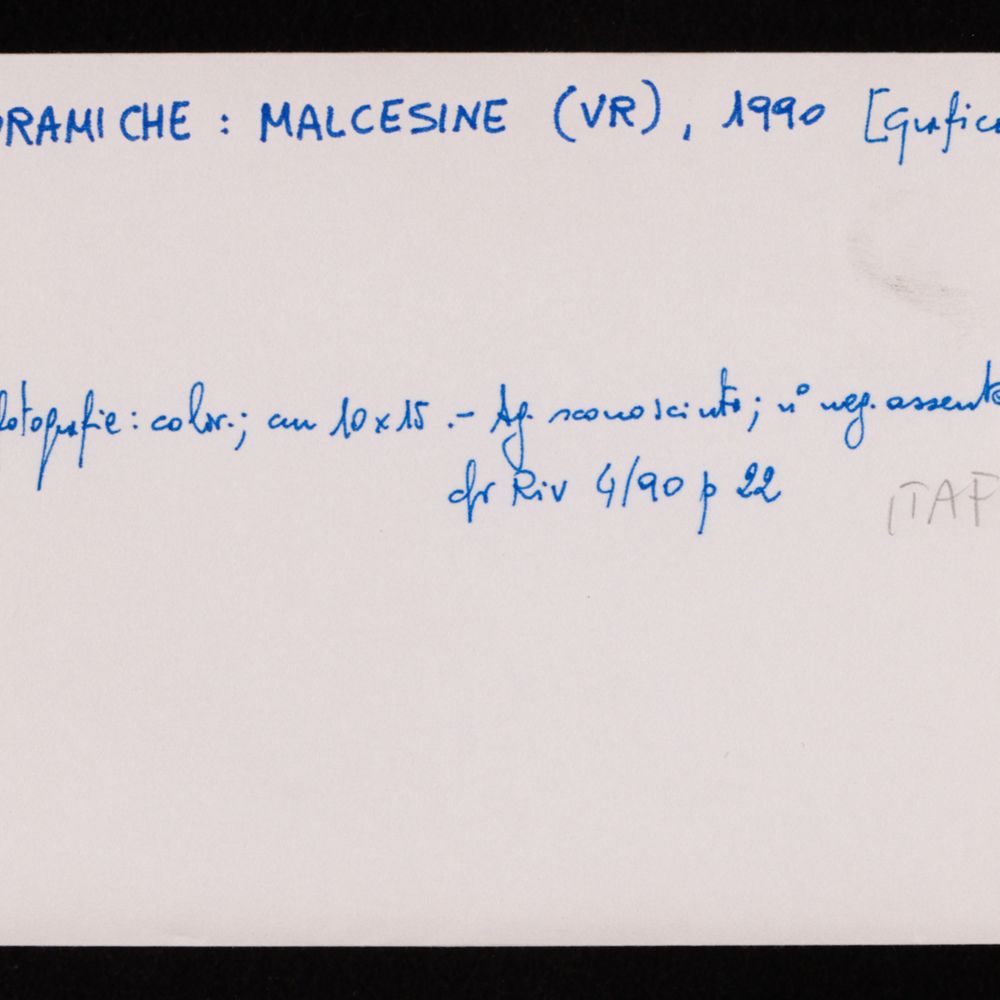 ORAMICHE : MALCESINE (VR), 1990 [Grafica
fotografie : color. ; cm 10x15 .- Ag. sconosciuto ; n° neg. assente
cfr Riv 4/90 p 22
ITAF